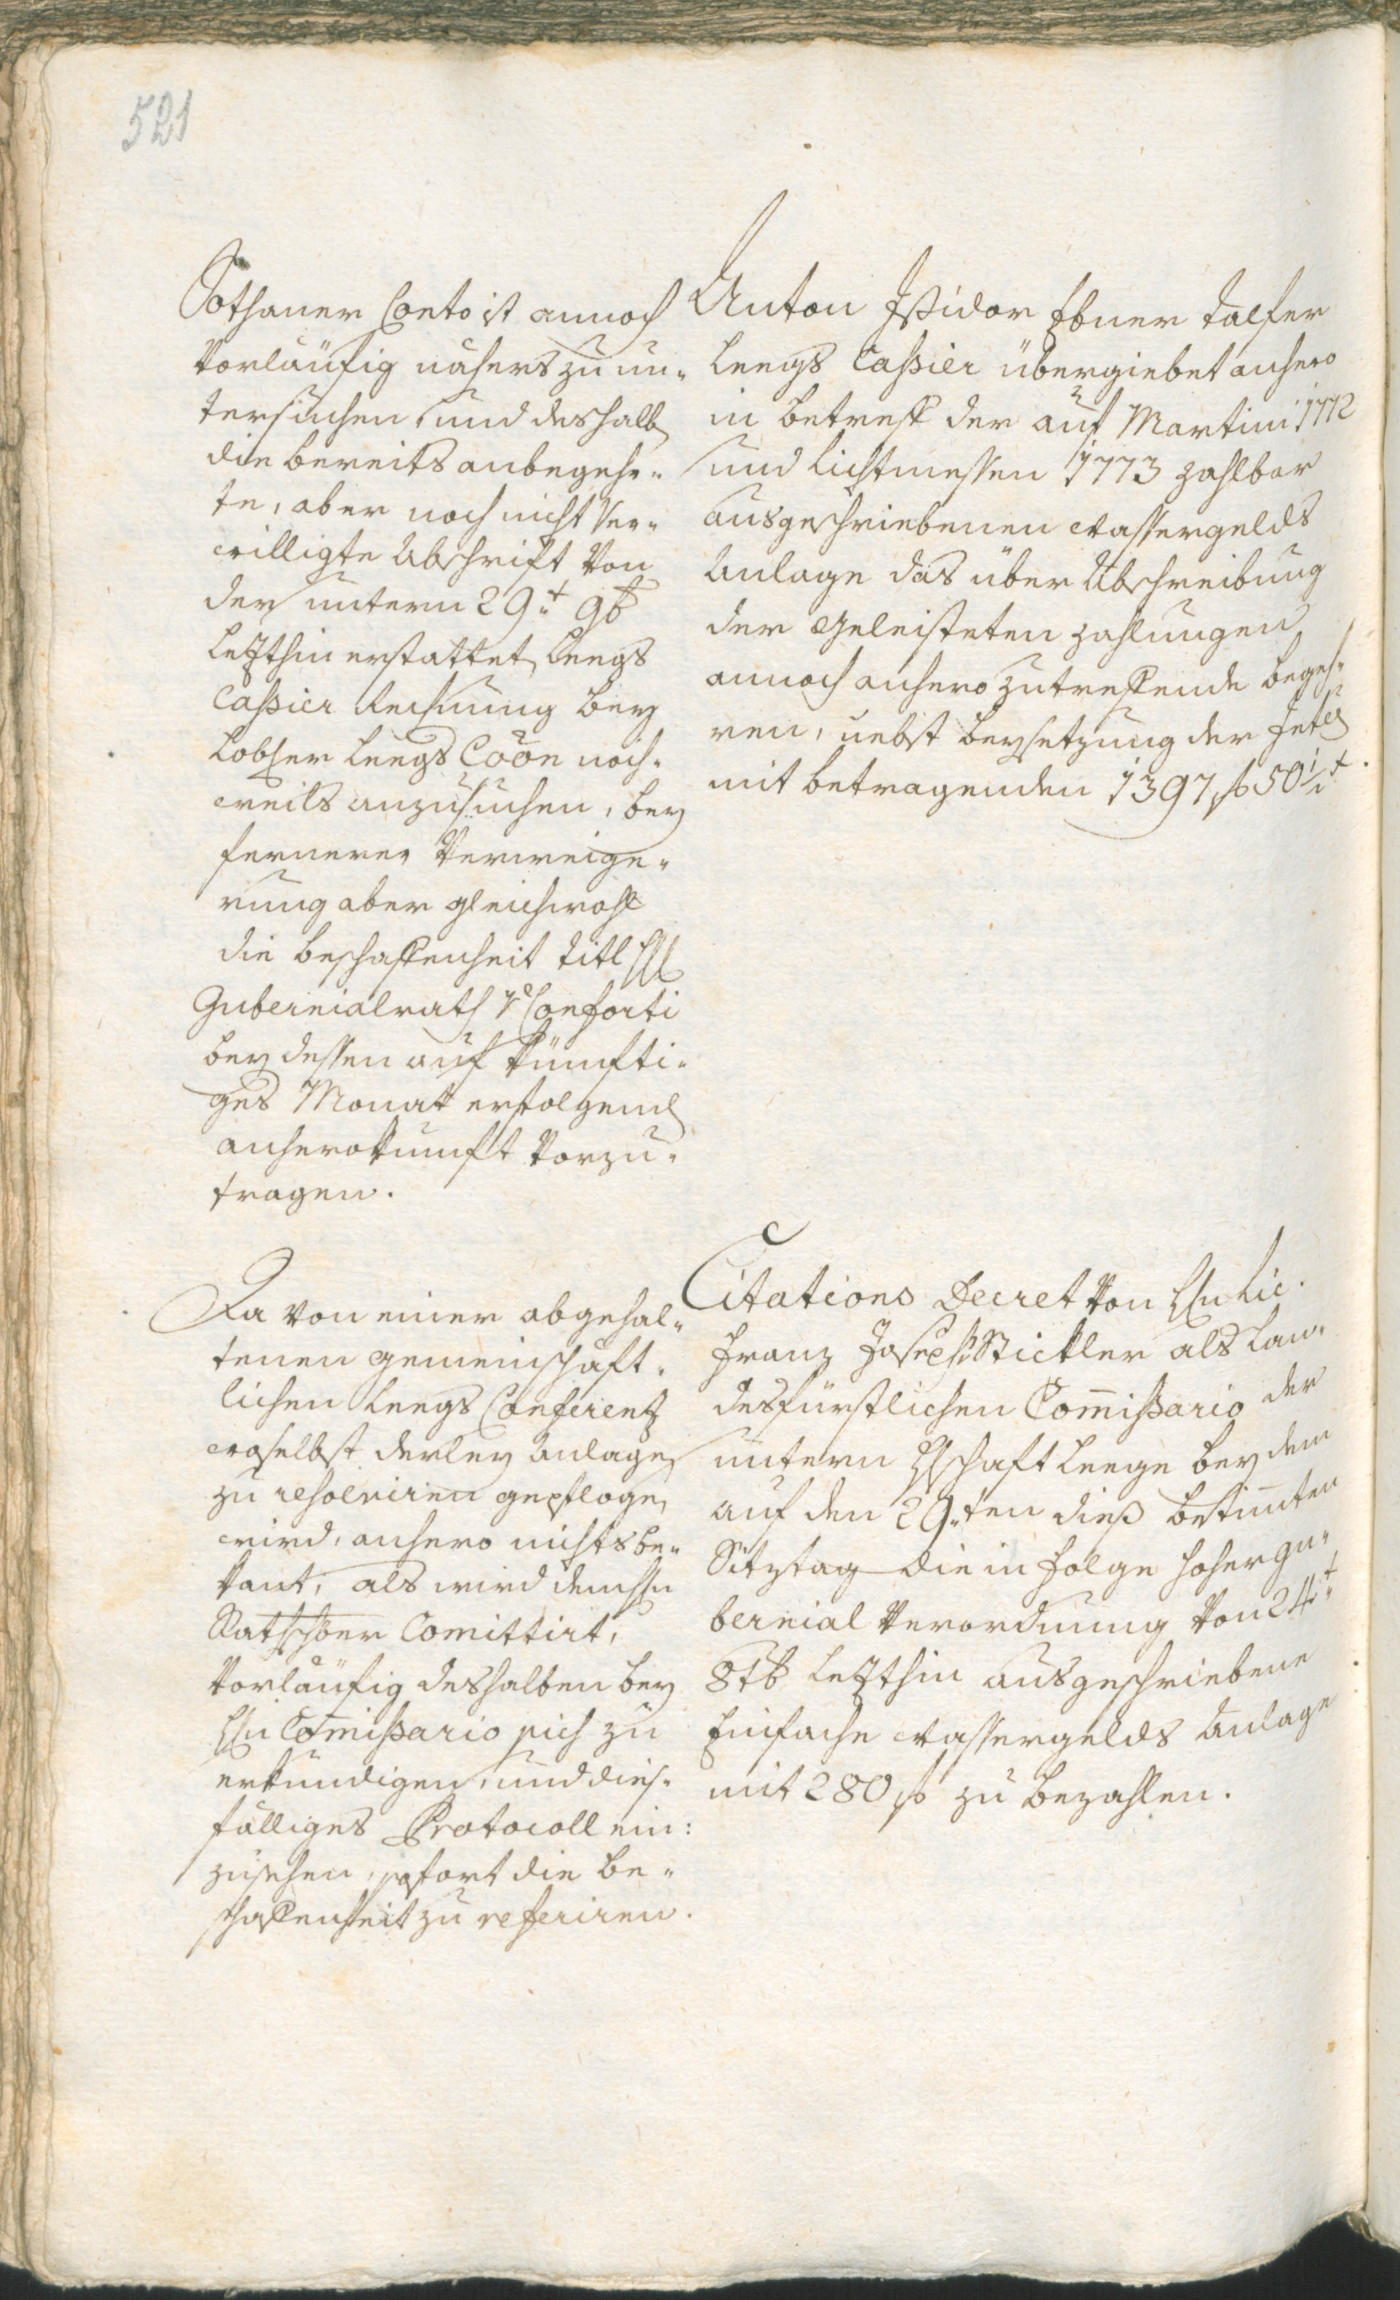 521
Sothaner Conto ist annoch
vorläufig nähers zu un-
tersuchen, und deshalb
die bereits anbegehr-
te, aber noch nicht ver-
willigte Abschrift von
der untern 29.t 9b
letzthin erstattet Leegs
Cassier Rechnung bey
lobher Leegs Coon noch-
weils anzusuchen, bey
fernerer Verweige-
rung aber gleichwohl
die Beschaffenheit titl
Gubernialrath v Conforti
bey dessen auf künfti-
ges Monat erfolgend
anherokunft vorzu-
tragen.
Anton Isidor Ebner Talfer
Leegs Cassier übergiebet anhero
in betreff der auf Martini 1772
und Lichtmessen 1773 zahlbar
ausgeschriebenen Wassergelds
Anlage das über Abschreibung
der geleisteten Zahlungen
annoch anhero zutreffende begeh-
ren, nebst beysetzung der
mit betragenden 1397 f 50
Da von einer abgehal-
tenen gemeinschaft-
lichen Leegs Conferentz
woselbst derley Anlagen
zu resolviren gepflogen
wird, anhero nichts be-
kant, als wird dem Hn
Committirt,
vorläufig deshalben bey
Hn Commissario sich zu
erkundigen, und dies-
fälliges Protocoll ein:
zusehen, sofort die Be-
schaffenheit zu referiren.
Citations Decret von Hn Lic.
Franz Joseph Stickler als Lan-
desfürstlichen Commissario der
untern Leege bey dem
auf den 29.ten dieß bestimten
Sitztag die in Folge hoher Gu-
bernial Verordnung von 24.t
8tb letzthin ausgeschriebene
Einfache Wassergelds Anlage
mit 280 f zu bezahlen.